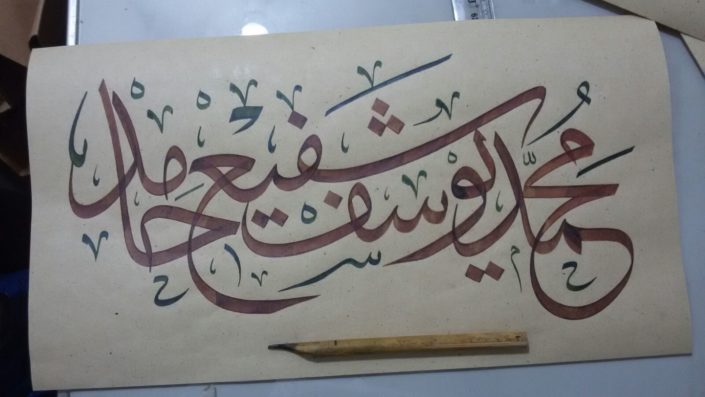 محمد يوسف شفيع حامد